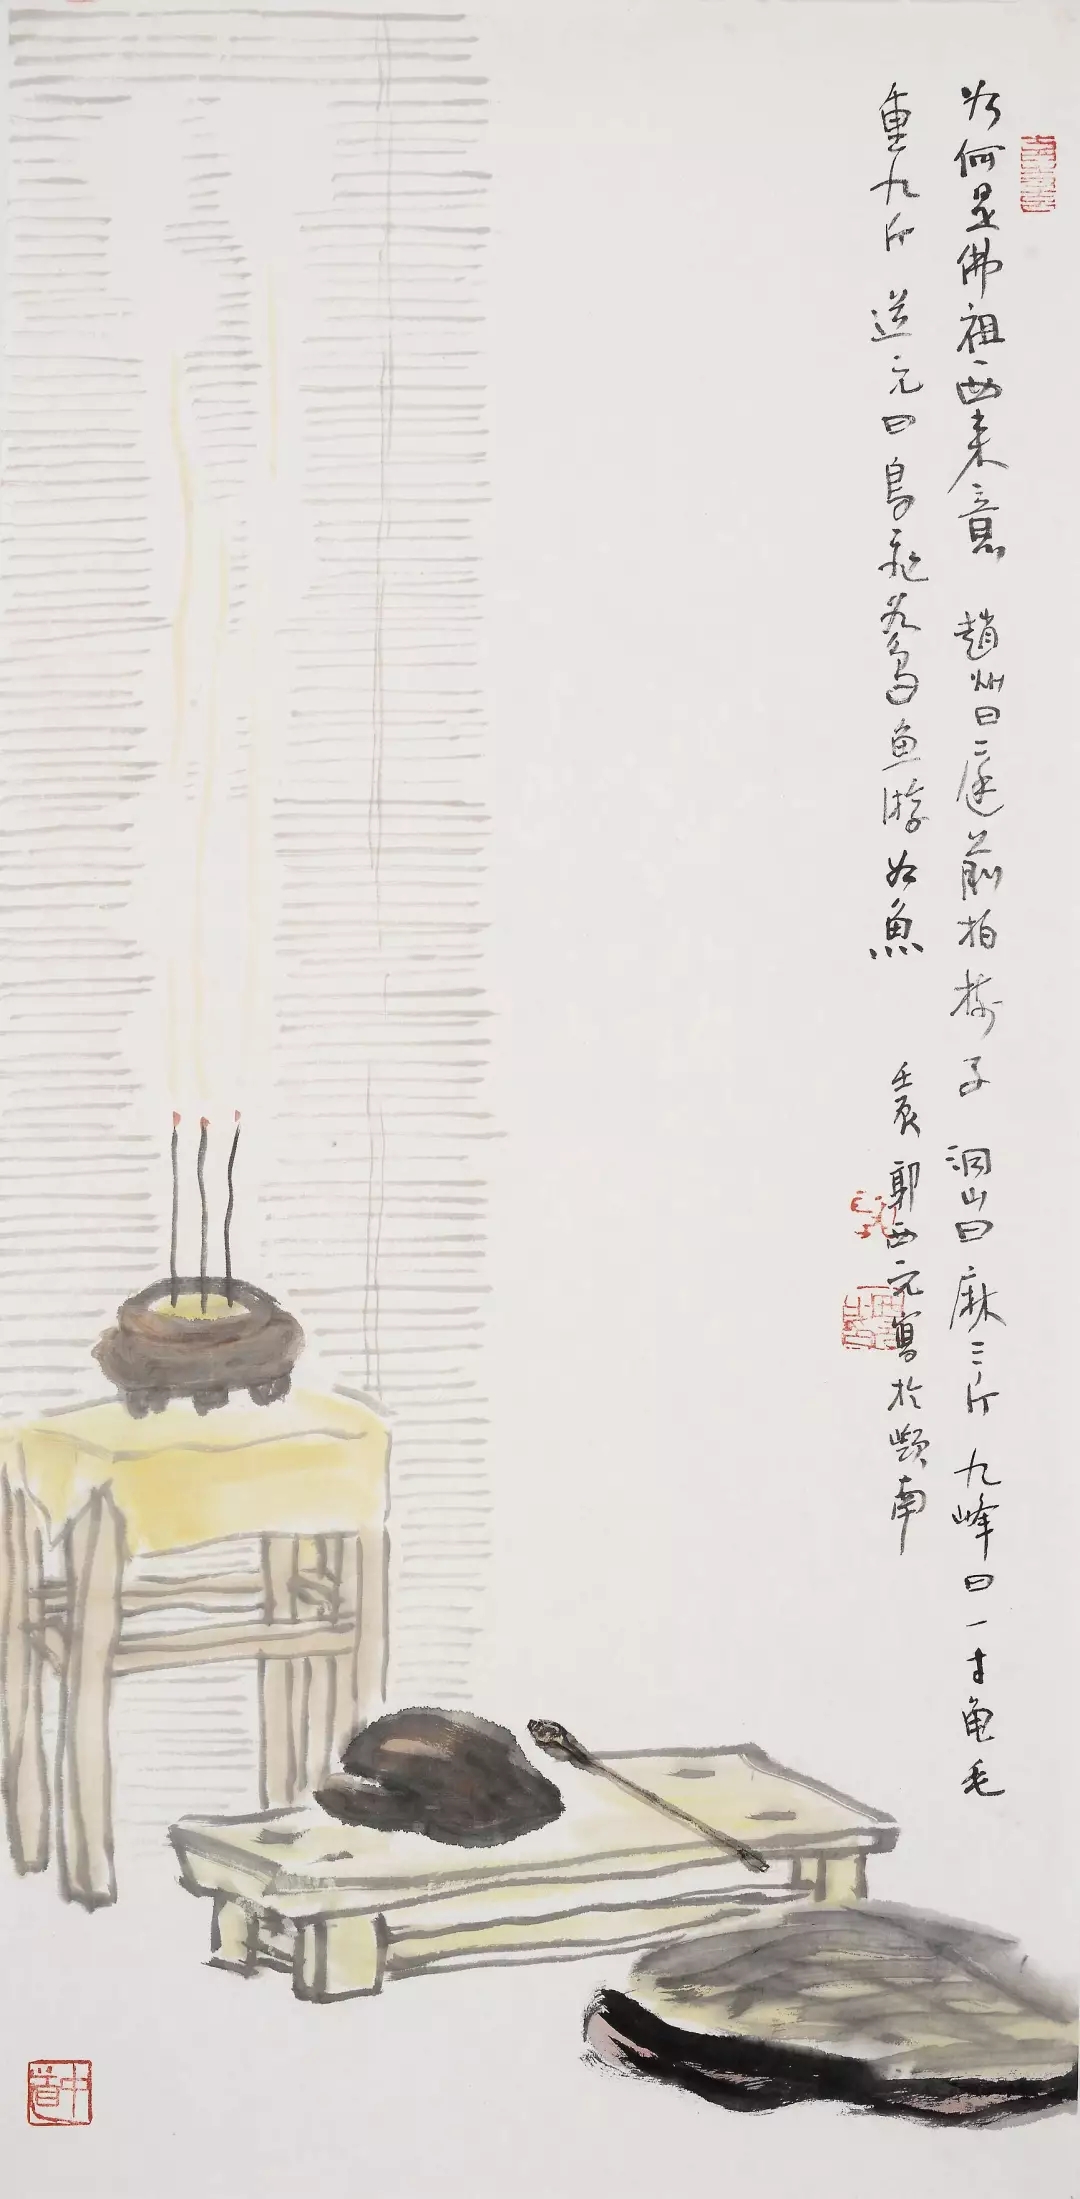 如何是佛祖西来意 趙州曰庭前柏樹子 洞山曰麻三斤 九峰曰一寸龜毛
重九斤 道元曰鳥飛如鳥魚游如魚
壬辰 郭西元寫於嶺南